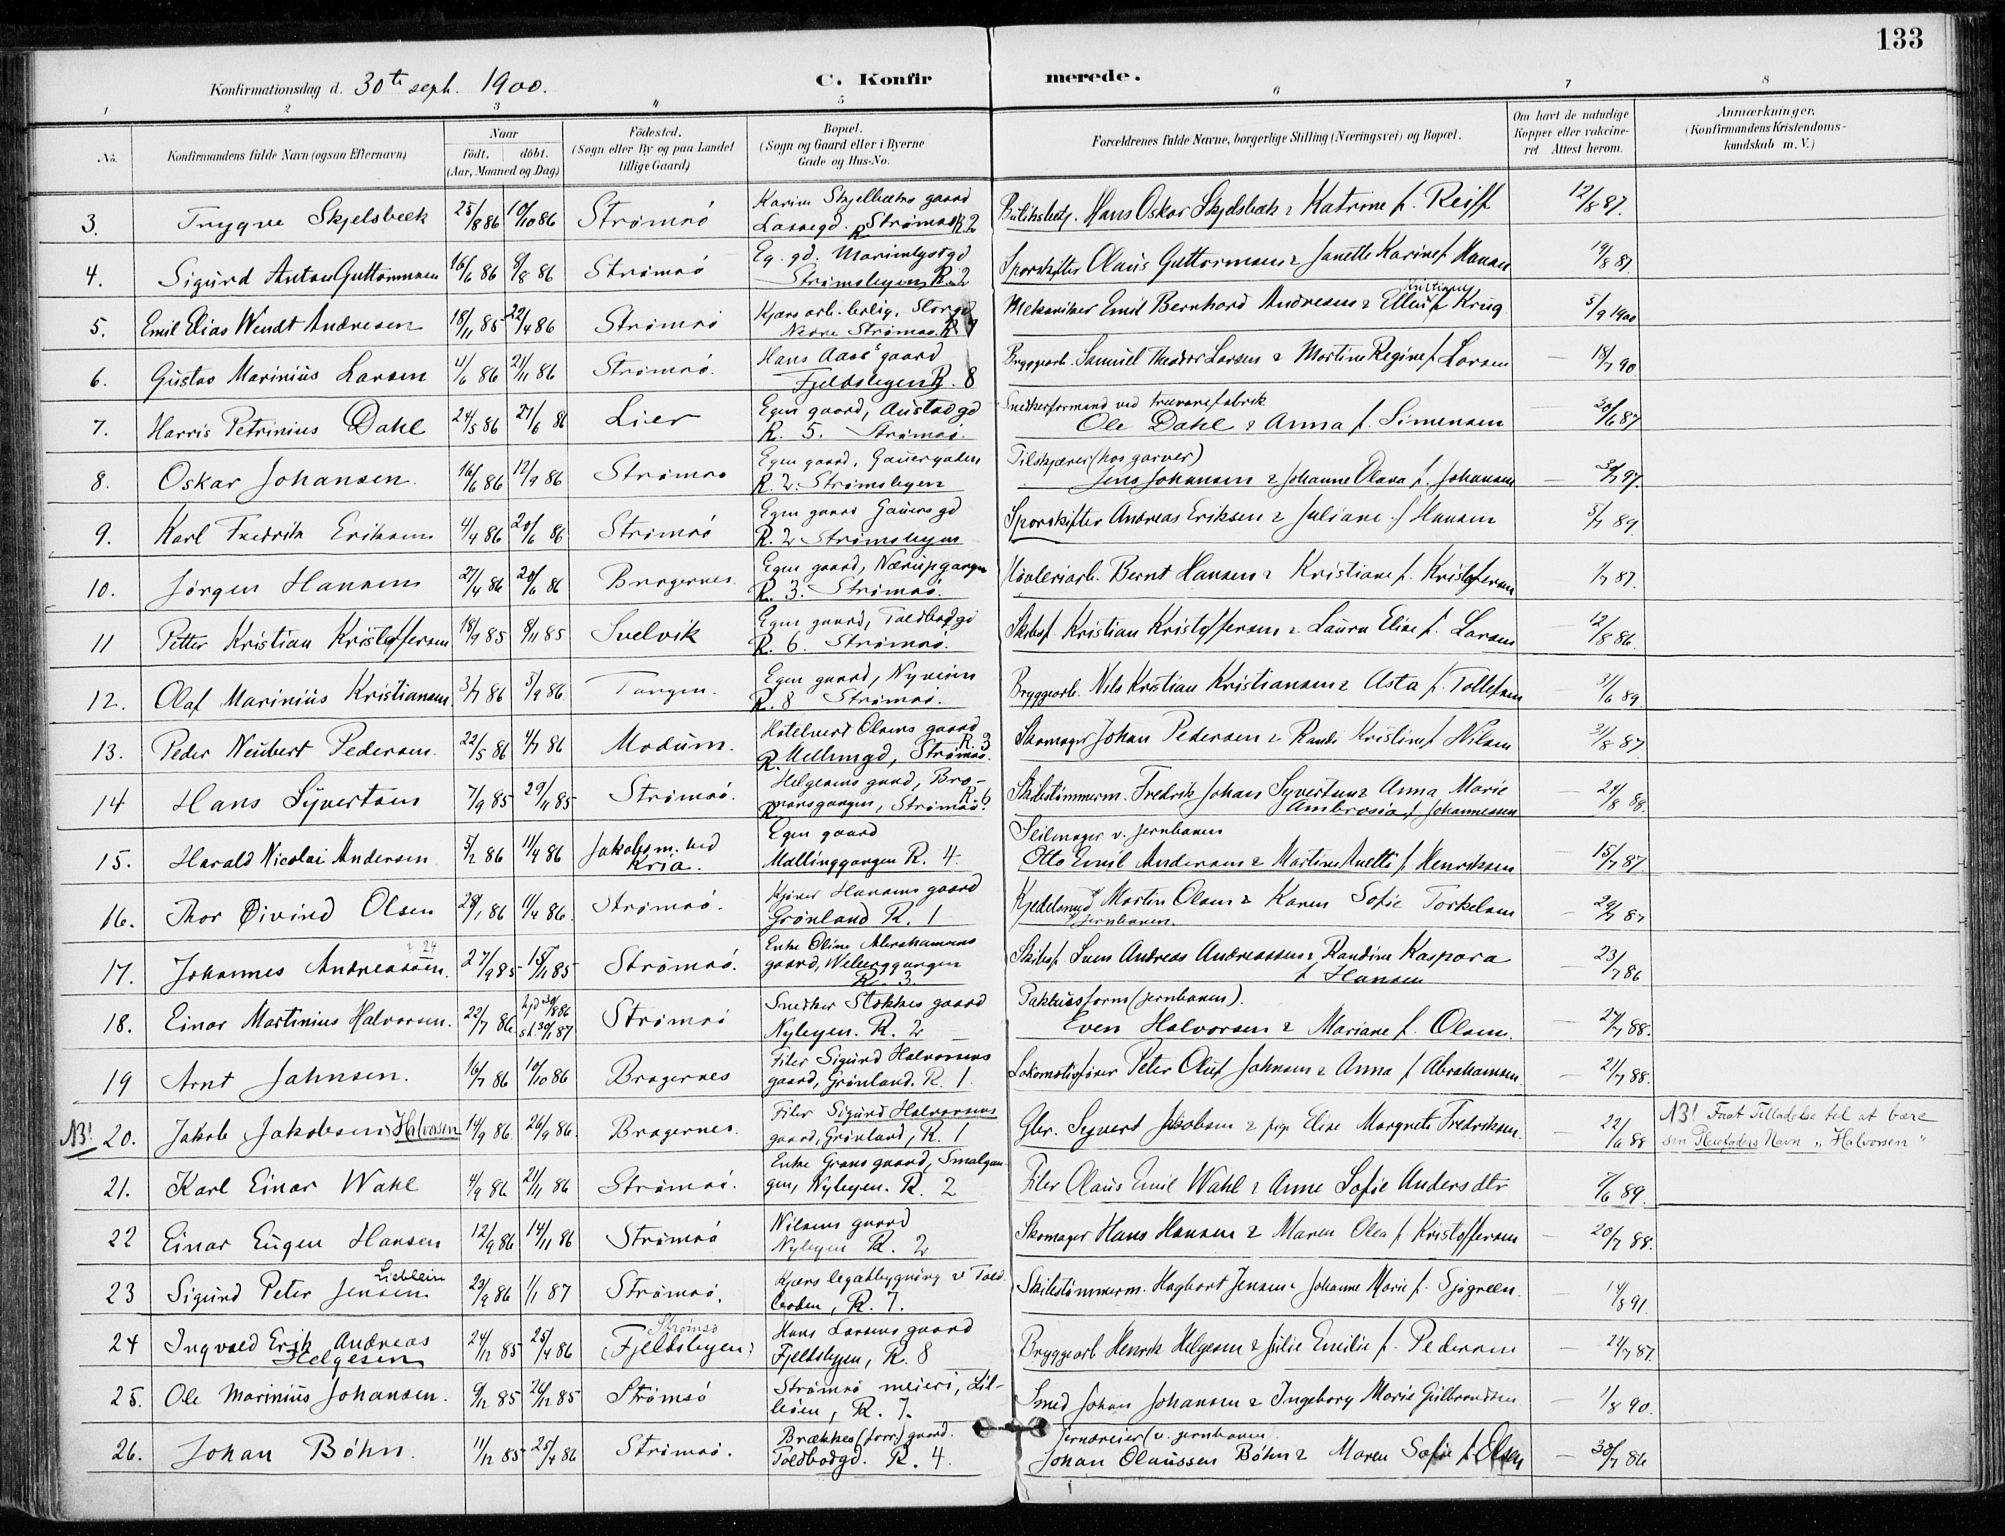 133
Konfirmationsdag d. 30te sept. 1900.
C. Konfirmerede.
1 2 3 4 5 6 7 8
No. Konfirmandens fulde Navn (ogsaa Efternavn) Naar født. døbt. (Aar, Maaned og Dag) Fødested. (Sogn eller By og paa Landet tillige Gaard) Bopæl. (Sogn og Gaard eller i Byerne Gade og Hus-No. Forældrenes fulde Navne, borgerlige Stilling (Næringsvei) og Bopæl. Om havt de naturlige Kopper eller vakcineret Attest herom. Anmærkninger. (Konfirmandens Kristendomskundskab m. V.)
3. Trygve Skjelsbæk 25/8 86 10/10 86 Strømsø Karine Skjelbæks gaard Lassegd. Strømsø R 2 Hans Oskar Skjelsbæk & Katrine f. Reiff 12/8 87.
4. Sigurd Anton Guttormsen 16/6 86 8/8 86 Strømsø Eg. gd. Marienlystgd Strømslegen R. 2 Sporskifter Olaus Guttormsen & Janette Karine f. Hansen 19/8 87
5. Emil Elias Wendt Andresen 18/11 85 22/4 86 Strømsø Kjærs arb. bolig, Storgd Nedre Strømsø. R. 7 Mekaniker Emil Bernhard Andresen & Ellen Kristiane f. Krug 5/9 1900
6. Gustav Marinius Larsen 4/6 86 21/11 86 Strømsø. Hans Aass' gaard Fjeldslegen R. 8 Bryggearb. Samuel Theodor Larsen & Martine Regine f. Larsen 18/7 90.
7. Harris Petrinius Dahl 24/5 86 27/6 86 Lier Egen gaard, Austadgd R. 5. Strømsø. Snedkerformand ved trævarefabrik Ole Dahl & Anna f. Simensen 30/6 87
8. Oskar Johansen. 16/6 86 12/9 86 Strømsø Egen gaard, Gauergaden R. 2. Strømslegen Tilskjærer (hos garver) Jens Johansen & Johanne Olava f. Johansen 97.
9. Karl Fredrik Eriksen 4/4 86 20/6 86 Strømsø Egen gaard Gauersgd R. 2 Strømslegen Sporskifter Andreas Eriksen & Juliane f. Hansen 5/7 89
10. Jørgen Hansen 27/4 86 20/6 86 Bragernes. Egen gaard, Nærupgangen R. 3. Strømsø. Bernt Hansen & Kristiane f. Kristoffersen 1/7 87.
11 Petter Kristian Kristoffersen 18/9 85 8/11 85 Svelvik Egen gaard, Toldbodgd R. 6. Strømsø. Skibsf. Kristian Kristoffersen & Laura Elise f. Larsen 12/8 86.
12. Olaf Marinius Kristiansen. 3/7 86 5/9 86 Tangen. Egen gaard, Nyveien R. 8 Strømsø. Bryggearb. Nils Kristian Kristiansen & Asta f. Tollefsen 89
13. Peder Neubert Pedersen. 22/5 86 4/7 86 Modum. Hotelvert Olsens gaard R. 3 Mellemgd, Strømsø. Skomager Johan Pedersen & Randi Kristine f. Nilsen 31/8 87
14 Hans Syvertsen 7/9 85 29/11 85 Strømsø. Helgesens gaard, Bromandsgangen, Strømsø. R. 6 Skibstømmerm. Fredrik Johan Syvertsen & Anna Marie Ambrosia f. Johannessen 88.
15. Harald Nicolai Andersen 5/2 86 11/4 86 Jakobs m. ved Kria. Egen gaard Mallinggangen R. 4. Seilmager v. jernbanen Otto Emil Andersen & Martine Anette f. Henriksen 15/7 87.
16. Thor Øivind Olsen 28/1 86 11/4 86. Strømsø. Kjører Hansens gaard Grønland R. 1 Kjedelsmed v jernbanen. Martin Olsen & Karen Sofie Torkelsen 29/7 87
17. Johannes Andreassen. 27/9 85 15/11 85 Strømsø. Enke Oline Abrahamsens gaard, Weberggangen R. 3. Skibsf. Sven Andreas Andreassen & Randine Kaspara f. Hansen 23/7 86
18. Einar Martinius Halvorsen. 22/7 86. hjd 30/8 86 st. 30/1 87 Strømsø Snedker Stokkes gaard Nylegen. R. 2 Pakhusform (jernbanen). Even Halvorsen & Mariane f. Olsen. 27/7 88.
19 Arnt Johnsen. 16/7 86 10/10 86 Bragernes Filer Sigurd Halvorsens gaard, Grønland. R. 1. Lokomotivfører Peter Oluf Johnsen & Anna f. Abrahamsen. 21/7 88.
NB! 20. Jakob Jakobsen Halvorsen 14/9 86. 26/9 86. Bragernes. Filer Sigurd Halvorsens gaard, Grønland, R. 1 Gbr. Syvert Jakobsen & pige Elise Margrete Fredriksen. 22/6 88 NB! Faat Tilladelse til at bære sin Pleiefaders Navn „Halvorsen"
21. Karl Einar Wahl 4/9 86 21/11 86 Strømsø. Enke Grans gaard, Smalgangen, Nylegen. R. 2 Filer Olaus Emil Wahl & Anne Sofie Andersdtr 7/6 89.
22 Einar Eugen Hansen 12/9 86 14/11 86 Strømsø Nilsens gaard Nylegen R. 2 Skomager Hans Hansen & Maren Olea f. Kristoffersen 20/7 88.
23 Sigurd Peter Lieblein Jensen 23/9 86 1/1 87 Strømsø. Kjærs legatbygning v Toldboden, R. 7. Skibstømmerm. Hagbart Jensen & Johanne Marie f. Sjøgreen. 14/8 91.
24 Ingvald Erik Andreas Helgesen 24/12 85 25/4 86 Strømsø (Fjeldslegen) Hans Larsens gaard Fjeldslegen, R. 8 Bryggearb Henrik Helgesen & Julie Emilie f. Pedersen 21/7 87.
25. Ole Marinius Johansen. 6/12 85 26/12 85 Strømsø Strømsø meieri, R. 7. Smed Johan Johansen & Ingeborg Marie Gulbrandsen 11/8 90.
26. Johan Bøhn. 11/12 85 25/4 86 Strømsø. Brækkes (forr.) gaard. Toldbodgd. R. 4. Jerndreier (v. jernbanen Johan Olaussen Bøhn & Maren Sofie f. Olsen 30/7 86